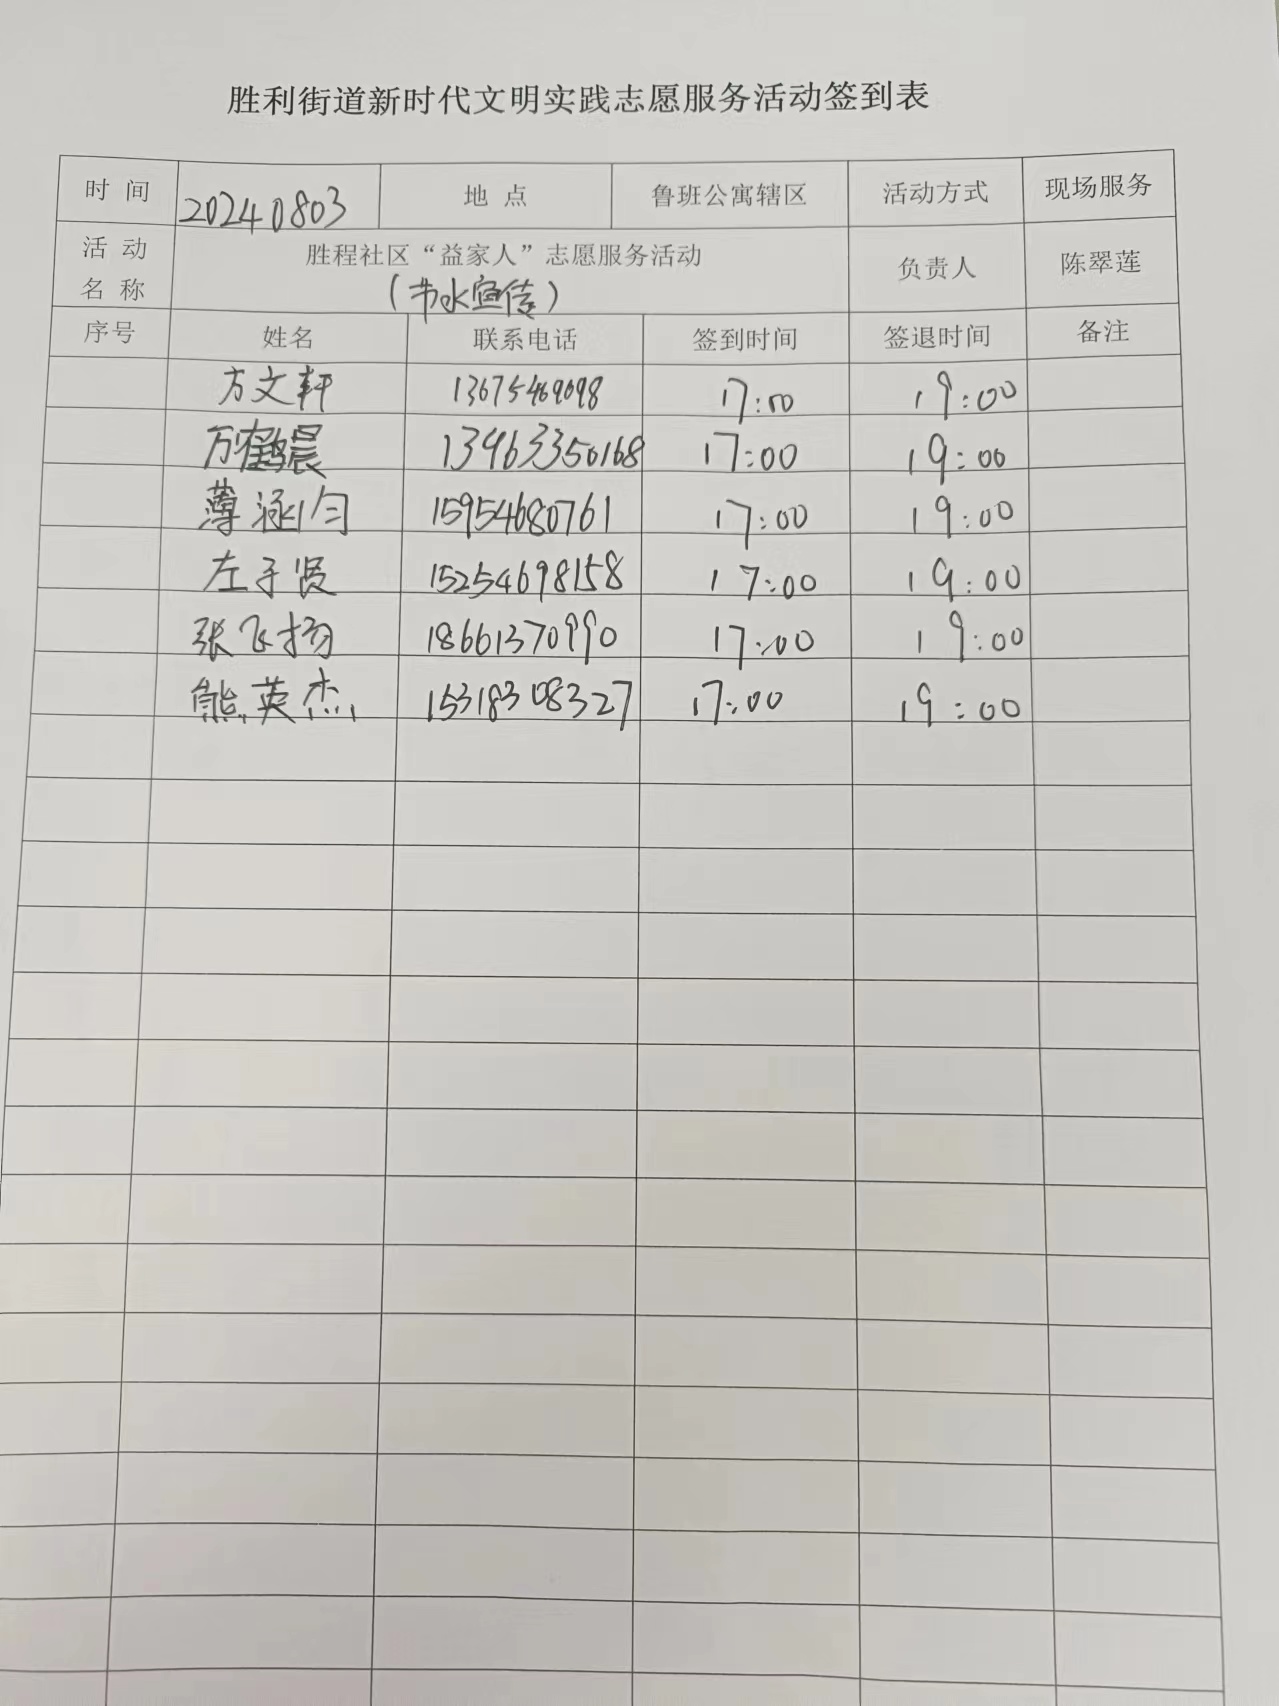 胜利街道新时代文明实践志愿服务活动签到表
时 间 20240803 地 点 鲁班公寓辖区 活动方式 现场服务
活 动 名 称 胜程社区“益家人”志愿服务活动 负责人 陈翠莲
(节水宣传)
序号 姓名 联系电话 签到时间 签退时间 备注
方文轩 13675469098 17:00 19:00
万鹤晨 13963350168 17:00 19:00
薄涵匀 15954680761 17:00 19:00
左子贤 15254698158 17:00 19:00
张飞扬 18661370990 17:00 19:00
熊英杰 15318308327 17:00 19:00